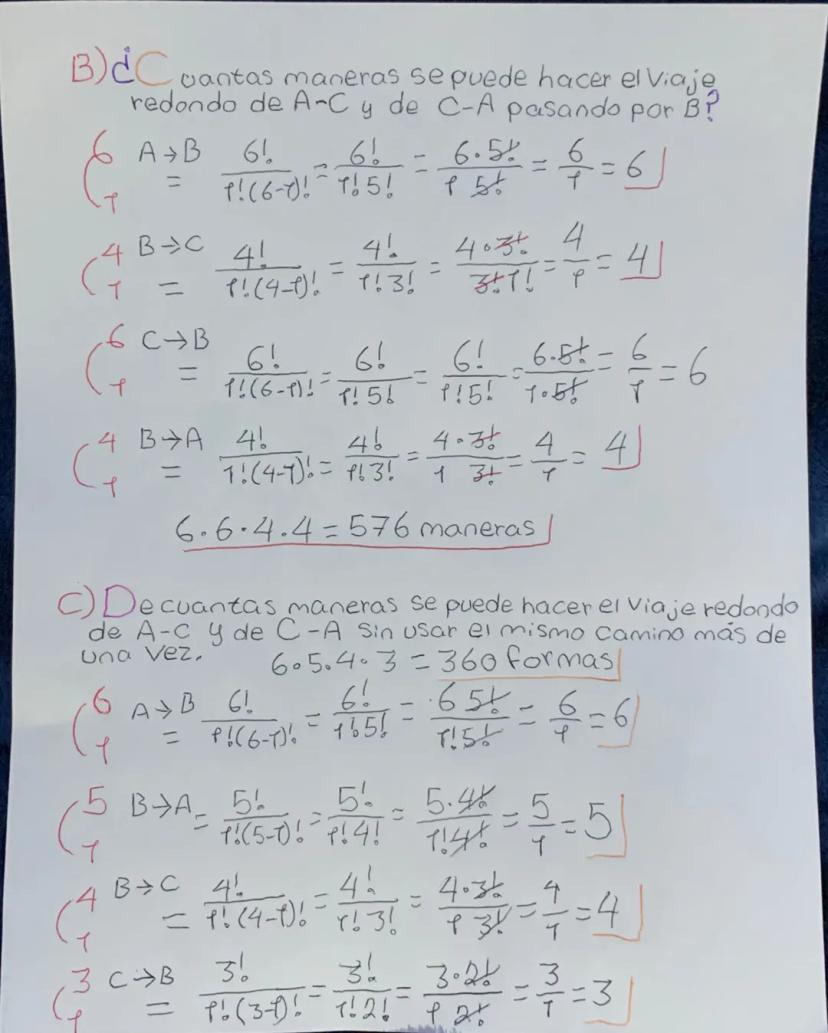 B) ¿Cuantas maneras se puede hacer el viaje
redondo de A-C y de C-A pasando por B?
C 6 1 A→B = 6!/1!(6-1)! = 6!/1!5! = 6·5!/1 5! = 6/1 = 6
C 4 1 B→C = 4!/1!(4-1)! = 4!/1!3! = 4·3!/3!1! = 4/1 = 4
C 6 1 C→B = 6!/1!(6-1)! = 6!/1!5! = 6!/1!5! = 6·5!/1·5! = 6/1 = 6
C 4 1 B→A = 4!/1!(4-1)! = 4!/1!3! = 4·3!/1 3! = 4/1 = 4
6·6·4·4 = 576 maneras
C) De cuantas maneras se puede hacer el viaje redondo
de A-C y de C-A sin usar el mismo camino más de
una vez. 6·5·4·3 = 360 formas
C 6 1 A→B = 6!/1!(6-1)! = 6!/1!5! = 6 5!/1!5! = 6/1 = 6
C 5 1 B→A = 5!/1!(5-1)! = 5!/1!4! = 5·4!/1!4! = 5/1 = 5
C 4 1 B→C = 4!/1!(4-1)! = 4!/1!3! = 4·3!/1 3! = 4/1 = 4
C 3 1 C→B = 3!/1!(3-1)! = 3!/1!2! = 3·2!/1 2! = 3/1 = 3